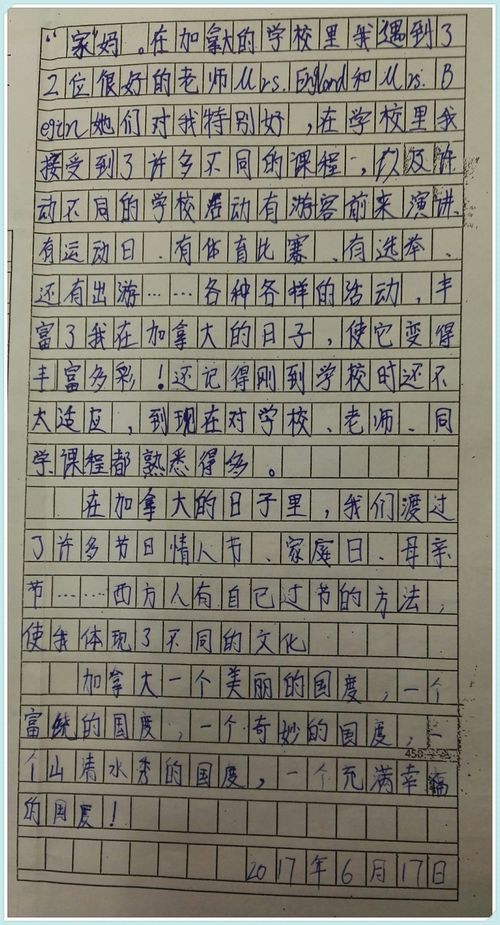 “家”妈。在加拿大的学校里我遇到了
2位很好的老师Mrs. England和Mrs. B
egin她们对我特别好，在学校里我
接受到了许多不同的课程，以及许
动不同的学校活动有游客前来演讲
有运动日、有体育比赛、有选举、
还有出游……各种各样的活动，丰
富了我在加拿大的日子，使它变得
丰富多彩！还记得刚到学校时还不
太适应，到现在对学校、老师、同
学课程都熟悉得多。
在加拿大的日子里，我们渡过
了许多节日情人节、家庭日、母亲
节……西方人有自己过节的方法，
使我体现了不同的文化
加拿大一个美丽的国度，一个
富饶的国度，一个奇妙的国度，一
450
个山清水秀的国度，一个充满幸福
的国度！
2017年6月17日